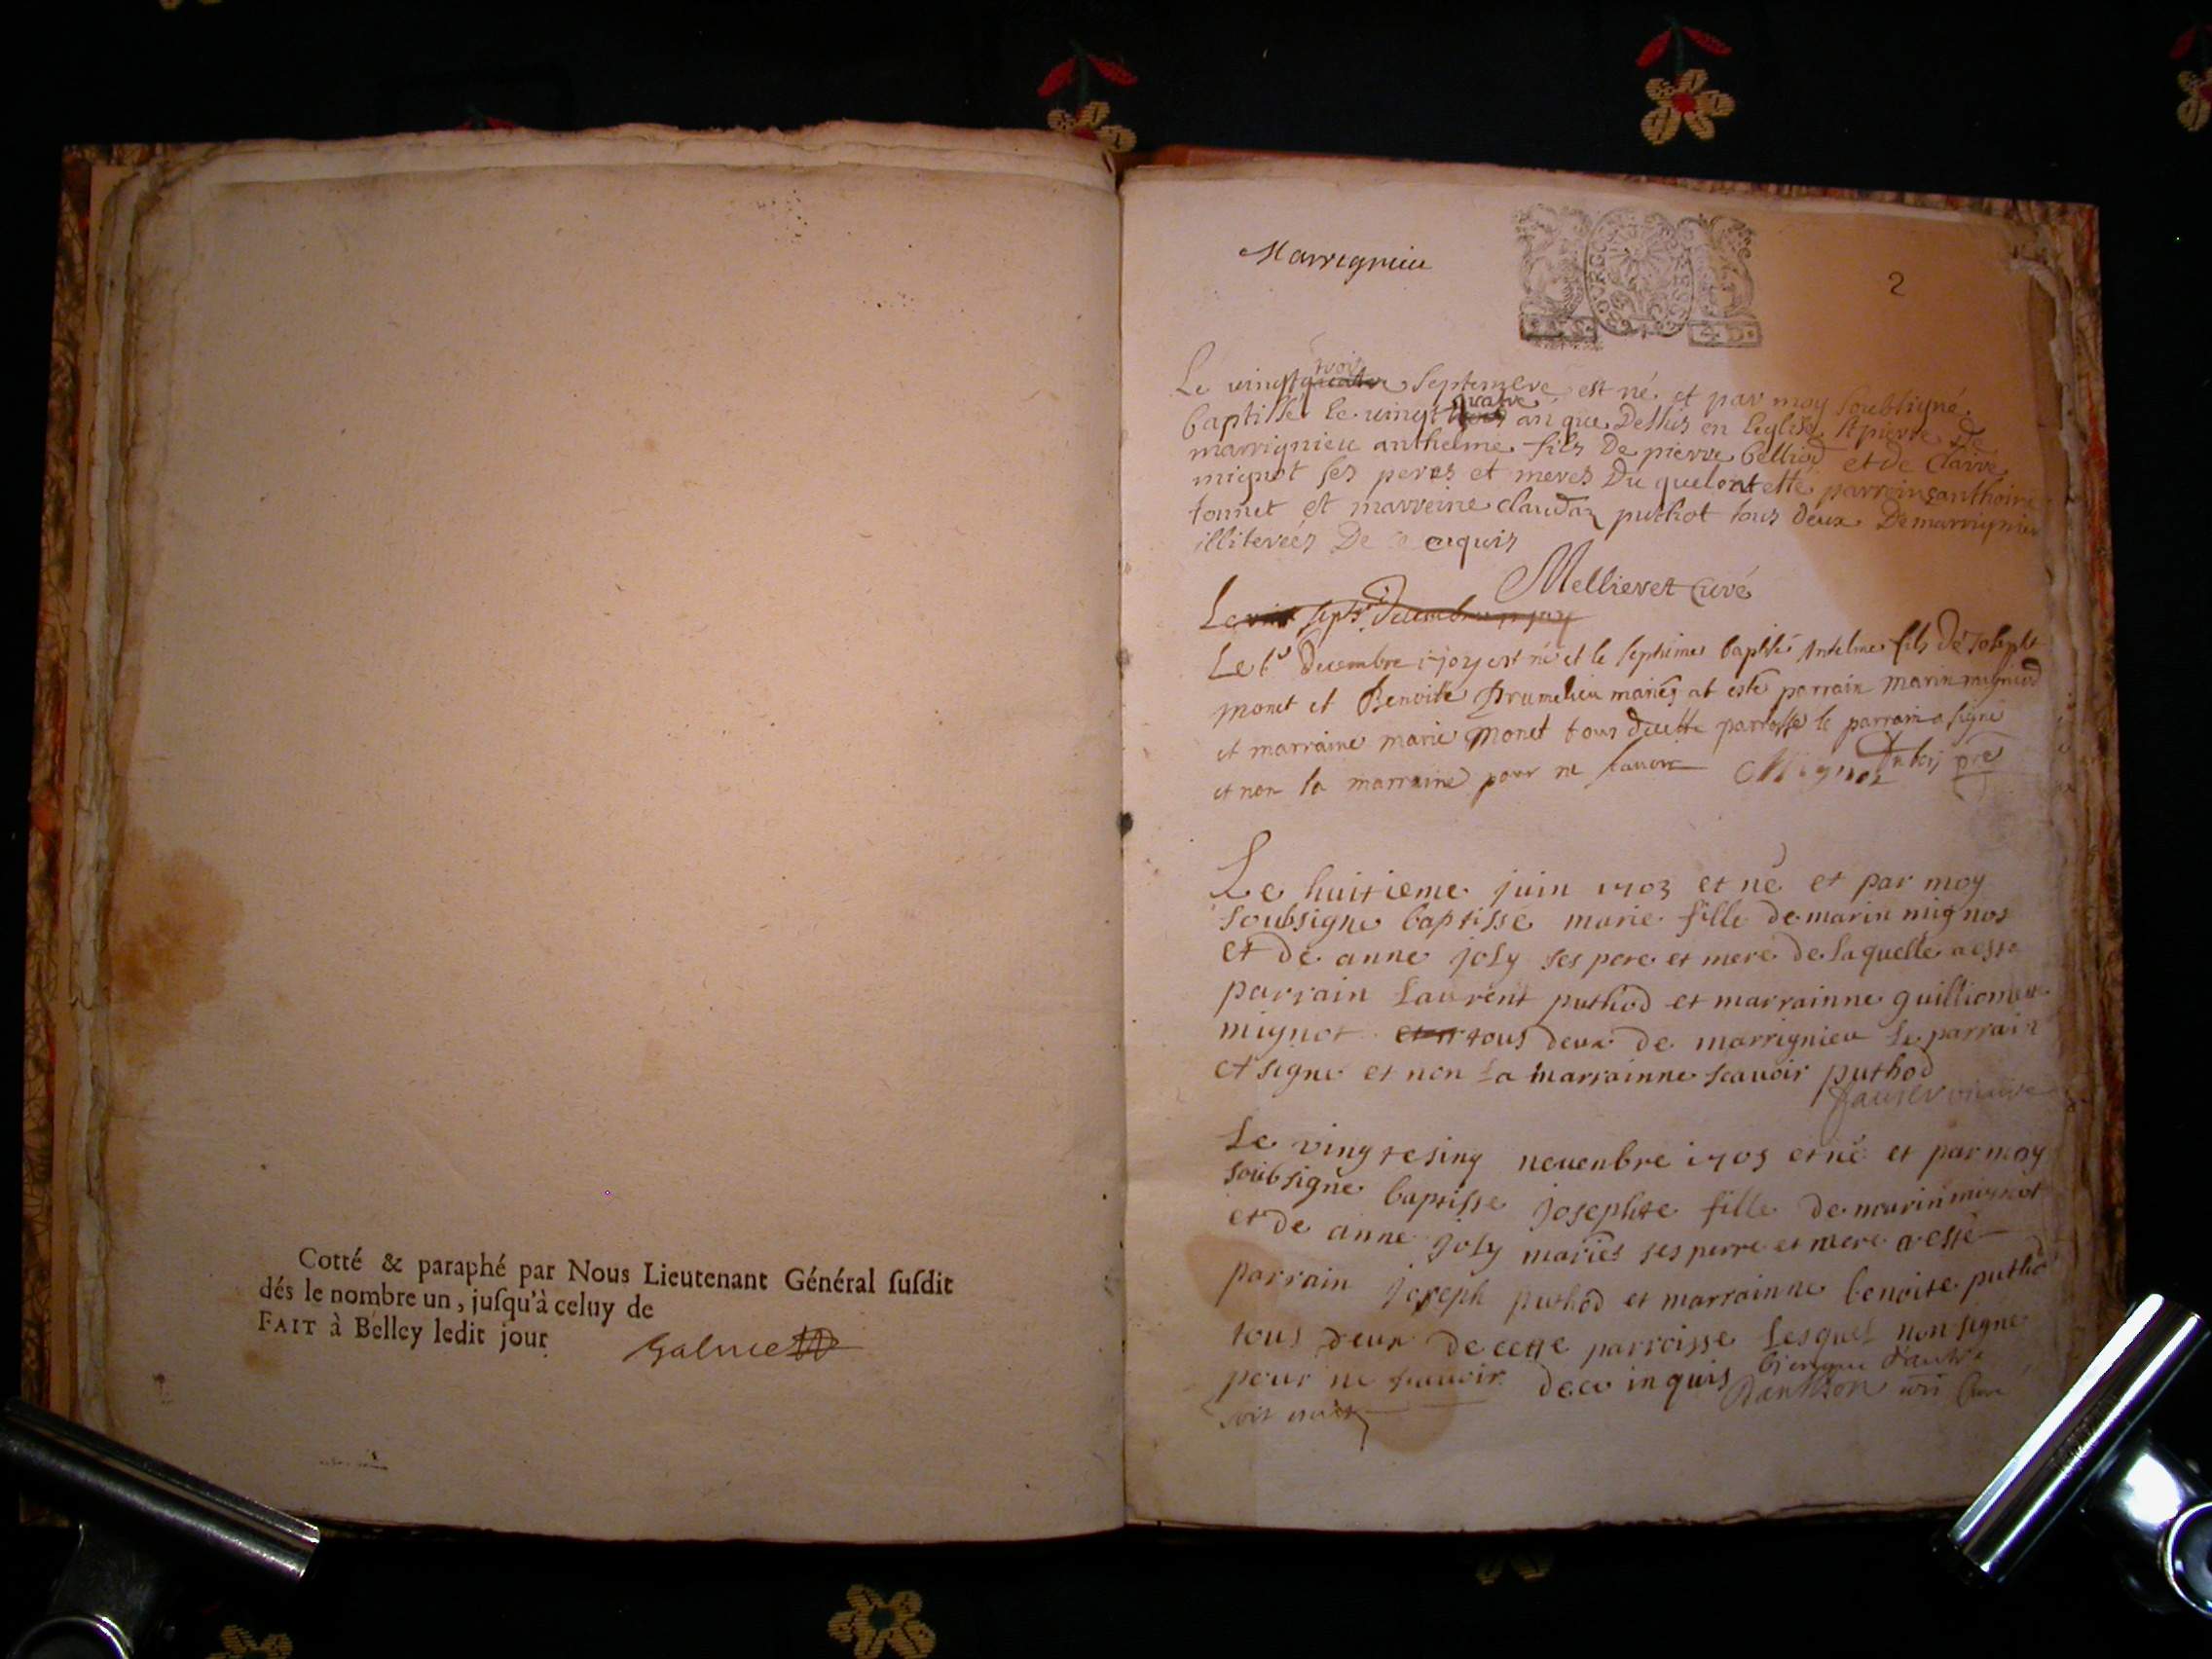 Cotté & paraphé par Nous Lieutenant Général ſuſdit
dés le nombre un, juſqu'à celuy de
FAIT à Belley ledit jour
Marrignieu
2
Le vingt quatre trois Septembre est né et par moy soubsigné
baptissé le vingt quatre an que Dessus en leglise st pierre De
marrignieu anthelme fils De pierre belliod et de Clavre
mignot ses peres et meres Du quel ont esté parrein anthoine
tonnet et marreine claudaz puthot tous deux De marrignieu
illiterées De ce enquis
Mellieret Curé
Le sept Decembre
Le 6e Decembre est né et le septieme baptisé Antelme fils de Joseph
monet et Benoite Brumelieu mariés at esté parrain marin mignod
et marraine marie monet tous de cette parroisse le parrain a signé
et non la marraine pour ne scavoir Mignoz pre
Le huitieme juin 1703 et né et par moy
soubsigne baptissé marie fille de marin mignos
et de anne joly ses pere et mere de laquelle a esté
parrain Laurent puthod et marrainne guilliemette
mignot tous deux de marrignieu le parrain
et signe et non la marrainne scavoir puthod
Le vingt e sinq nouenbre 1705 et né et par moy
soubsigne baptisse josephte fille de marin mignot
et de anne joly mariés ses perre et mere a esté
parrain joseph puthod et marrainne benoite putho
tous deux de cette parroisse lesquel non signe
pour ne scavoir de ce inquis